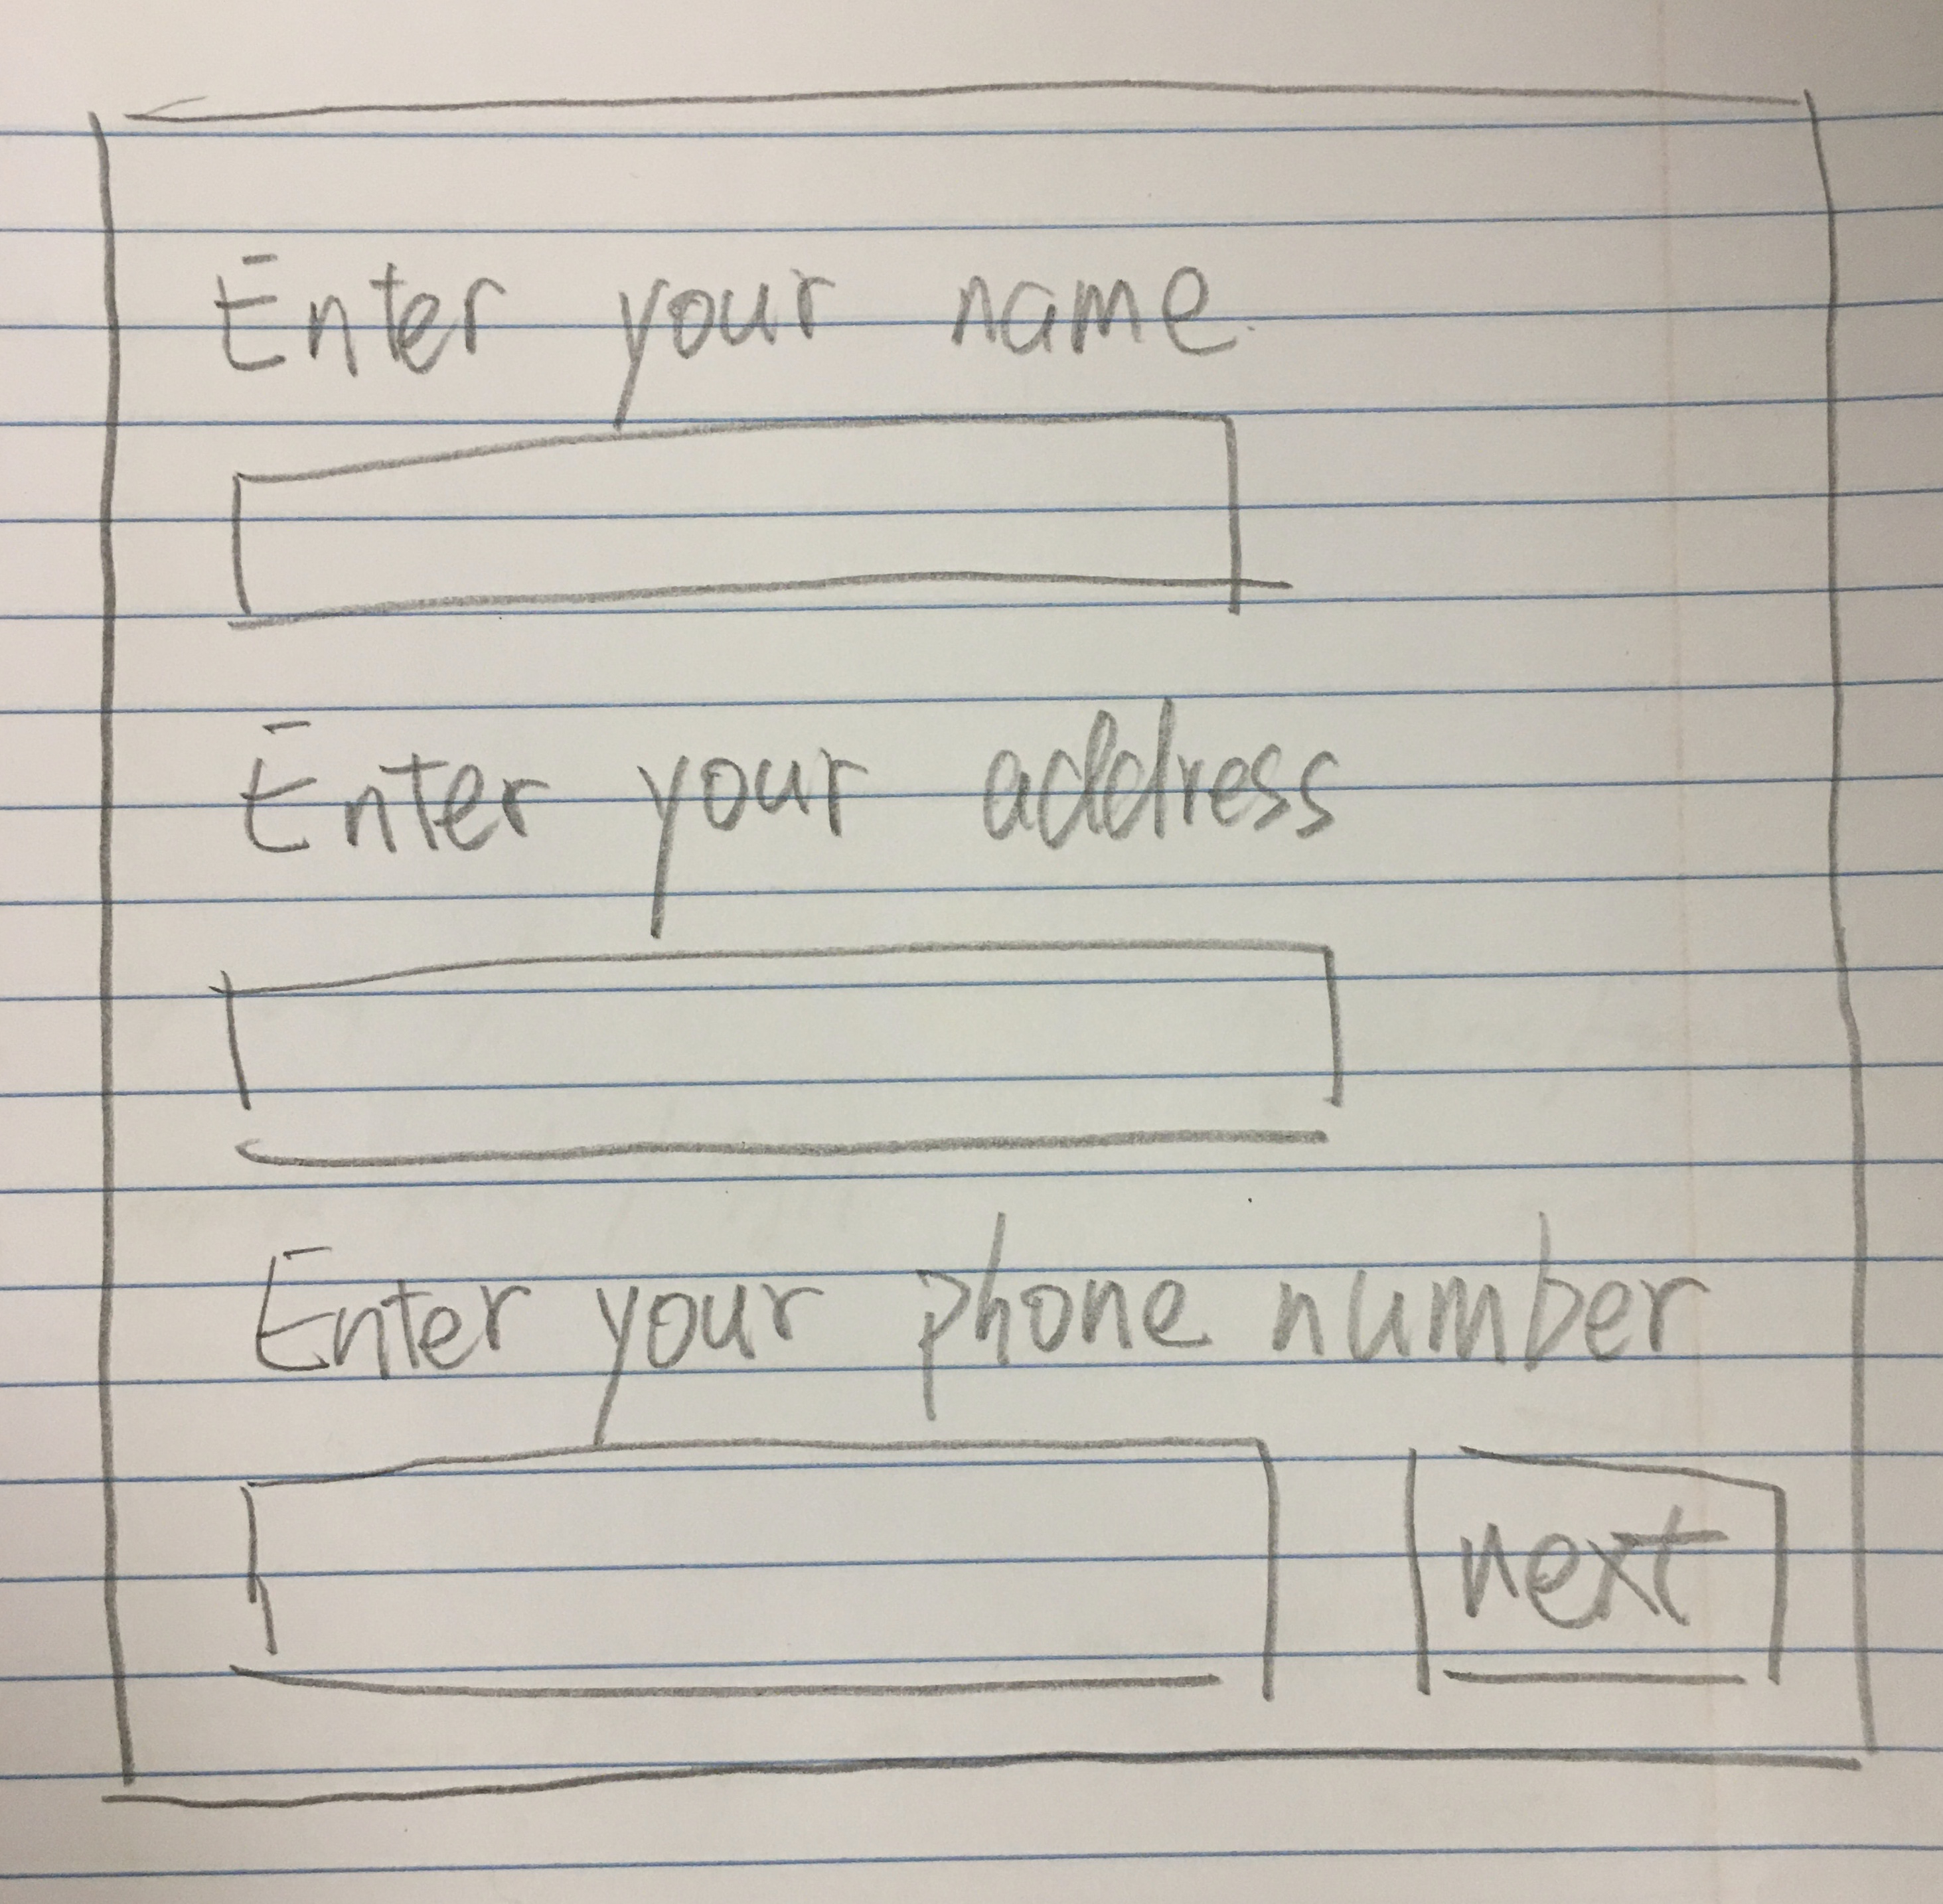 Enter your name
Enter your address
Enter your phone number
next